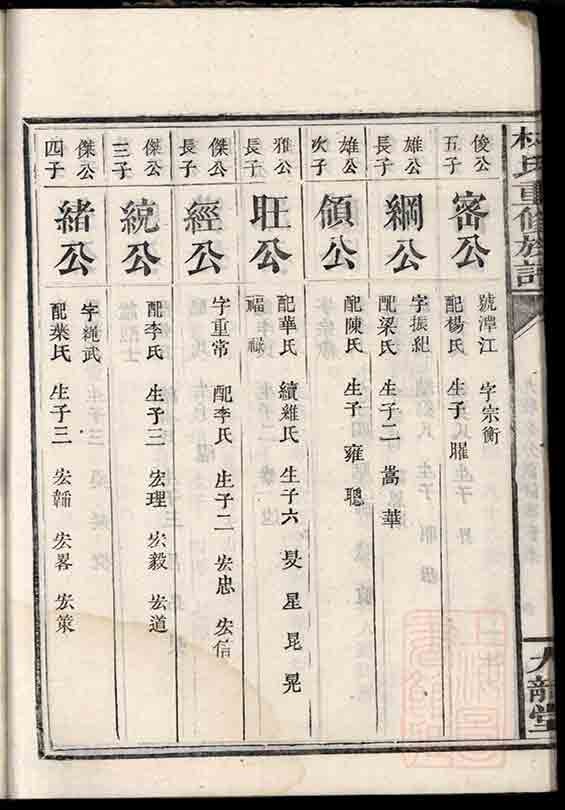 林氏重修族譜
九龍堂
俊公五子
密公
號潭江 字宗衡
配楊氏 生子 矅
雄公長子
綱公
字振紀
配梁氏 生子二 蒿 華
雄公次子
領公
配陳氏 生子 雍 聰
雅公長子
旺公
配華氏 續雜氏 生子六 旻 星 昆 晃
福 祿
傑公長子
經公
字重常 配李氏 生子二 宏忠 宏信
傑公三子
統公
配李氏 生子三 宏理 宏毅 宏道
傑公四子
緒公
字繩武
配葉氏 生子三 宏韜 宏畧 宏策